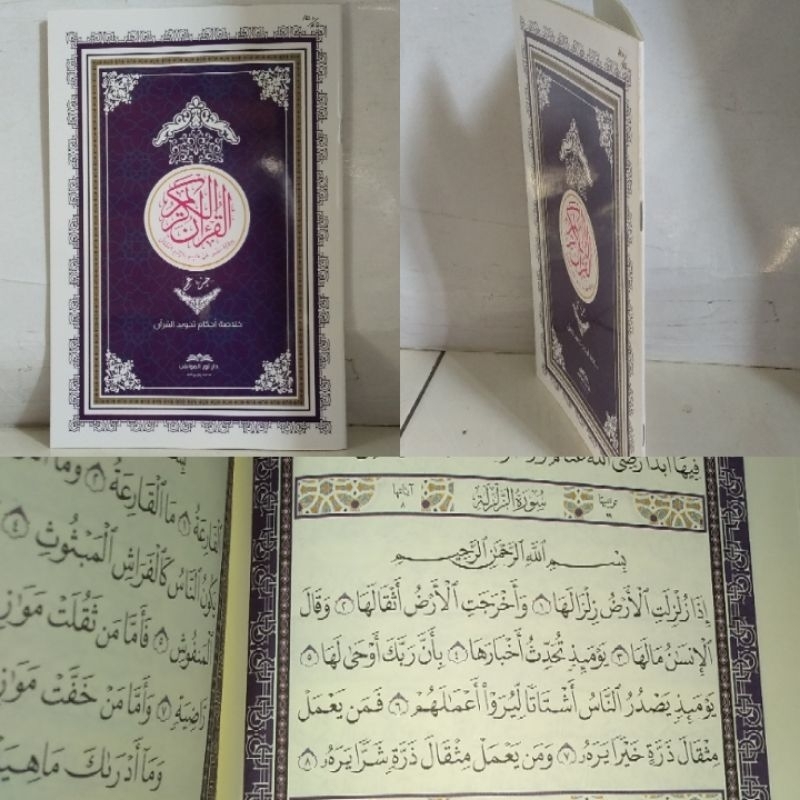 القرآن الكريم
جزء عم
خلاصة أحكام تجويد القرآن
فيها أبدا رضي الله عنهم
سورة الزلزلة
آياتها
٨
بِسْمِ ٱللَّهِ ٱلرَّحْمَٰنِ ٱلرَّحِيمِ
إِذَا زُلْزِلَتِ ٱلْأَرْضُ زِلْزَالَهَا ١ وَأَخْرَجَتِ ٱلْأَرْضُ أَثْقَالَهَا ٢ وَقَالَ
ٱلْإِنسَٰنُ مَالَهَا ٣ يَوْمَئِذٍ تُحَدِّثُ أَخْبَارَهَا ٤ بِأَنَّ رَبَّكَ أَوْحَىٰ لَهَا ٥
يَوْمَئِذٍ يَصْدُرُ ٱلنَّاسُ أَشْتَاتًا لِّيُرَوْا۟ أَعْمَٰلَهُمْ ٦ فَمَن يَعْمَلْ
مِثْقَالَ ذَرَّةٍ خَيْرًا يَرَهُۥ ٧ وَمَن يَعْمَلْ مِثْقَالَ ذَرَّةٍ شَرًّا يَرَهُۥ ٨
ٱلْقَارِعَةُ ١ مَا ٱلْقَارِعَةُ ٢ وَمَا
يَكُونُ ٱلنَّاسُ كَٱلْفَرَاشِ ٱلْمَبْثُوثِ ٤
ٱلْمَنفُوشِ ٥ فَأَمَّا مَن ثَقُلَتْ
رَّاضِيَةٍ ٧ وَأَمَّا مَنْ خَفَّتْ
وَمَآ أَدْرَىٰكَ مَاهِيَهْ